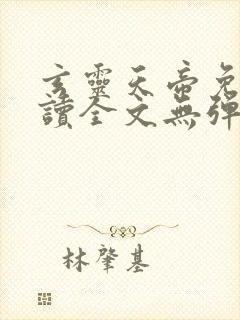 玄靈天帝免
讀全文無彈
林肇基